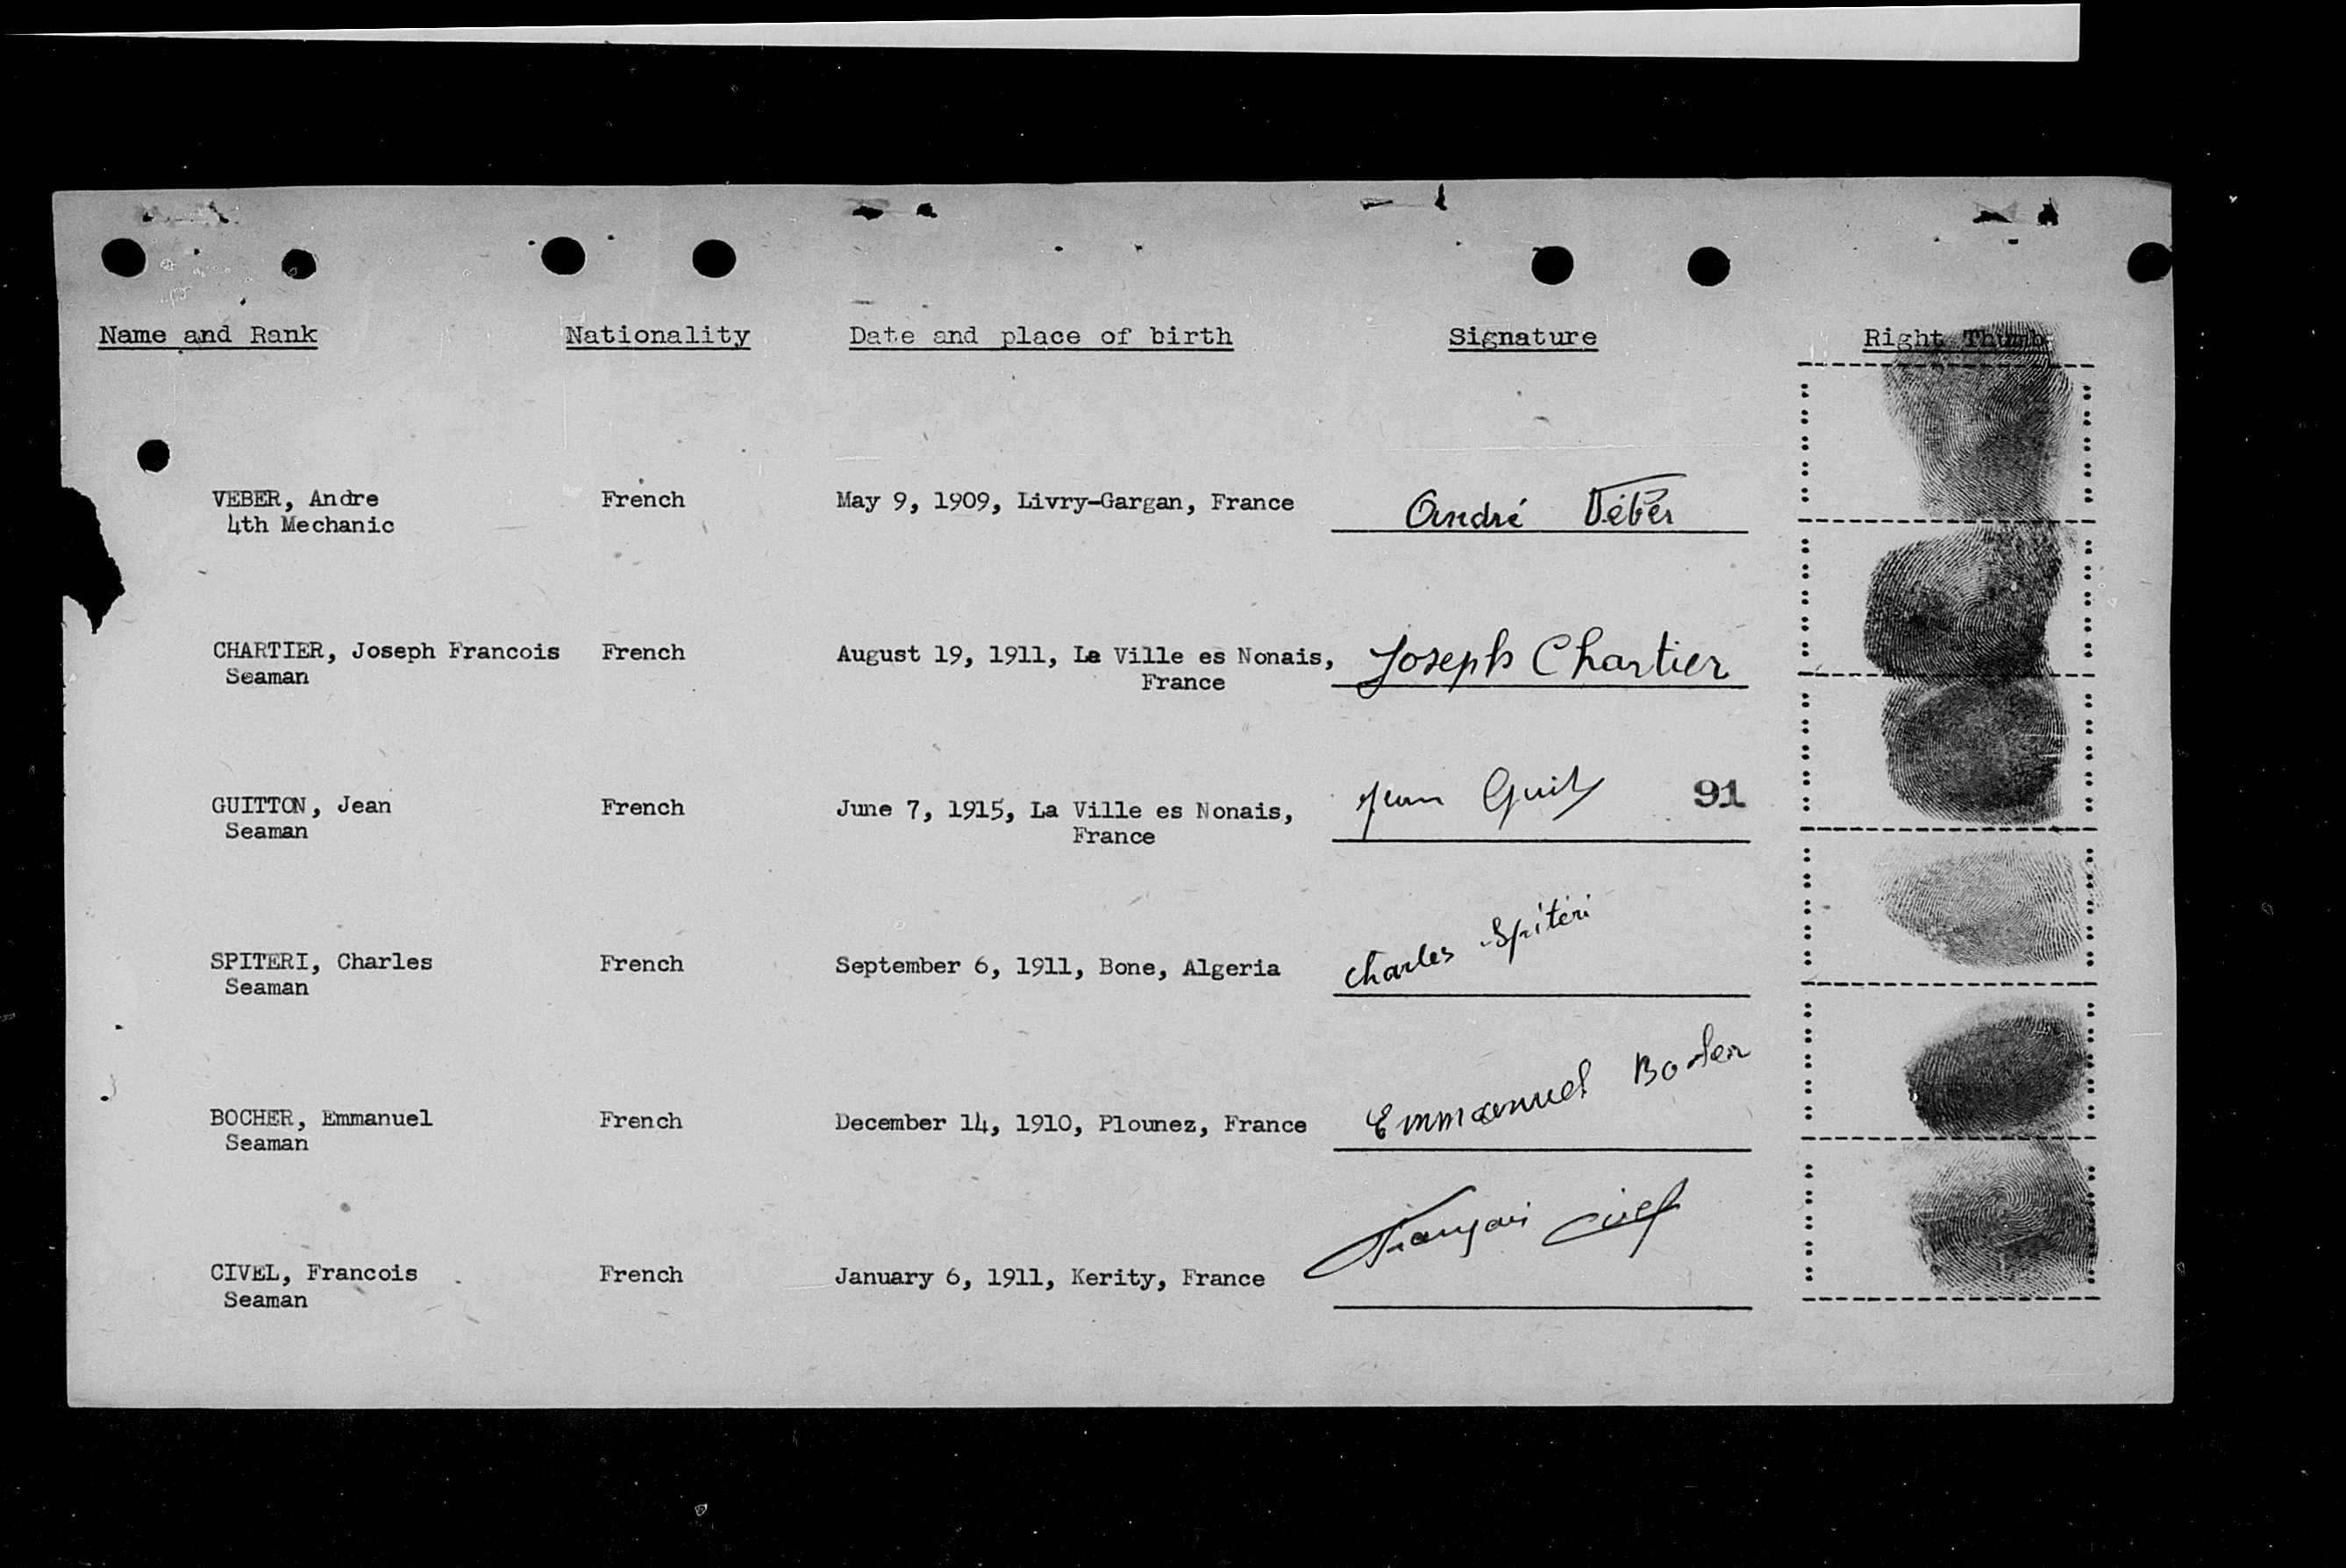 Name and Rank Nationality Date and place of birth Signature Right Thumb
VEBER, Andre French May 9, 1909, Livry-Gargan, France André Véber
4th Mechanic
CHARTIER, Joseph Francois French August 19, 1911, La Ville es Nonais, Joseph Chartier
Seaman France
GUITTON, Jean French June 7, 1915, La Ville es Nonais, Jean 91
Seaman France
SPITERI, Charles French September 6, 1911, Bone, Algeria Charles Spitéri
Seaman
BOCHER, Emmanuel French December 14, 1910, Plounez, France Emmanuel Bocher
Seaman
CIVEL, Francois French January 6, 1911, Kerity, France François Civel
Seaman